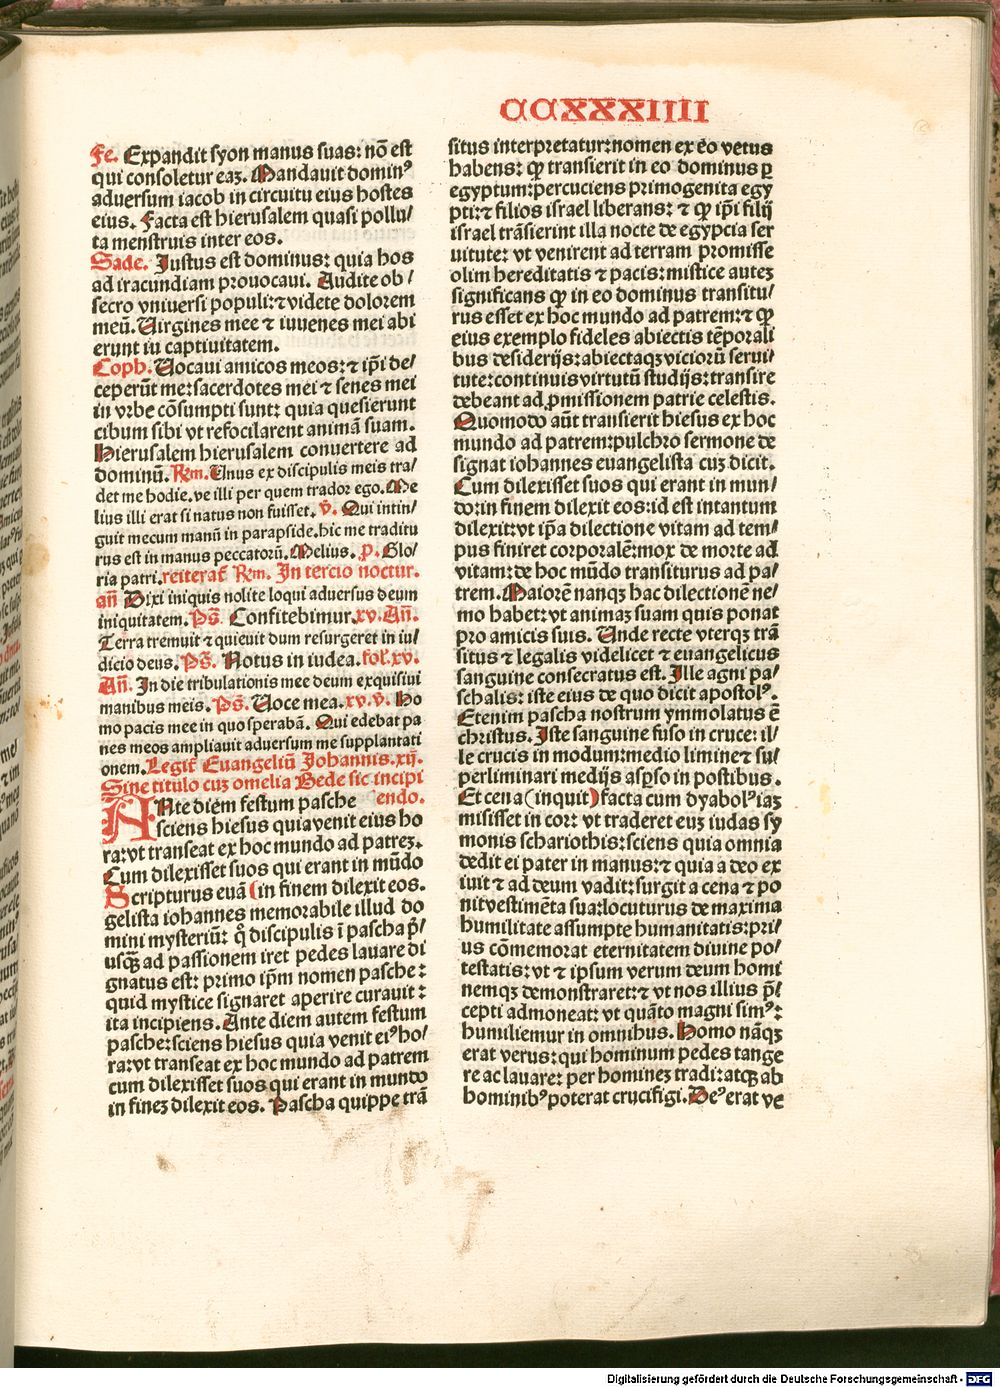 CCXXXIIII
Fe. Expandit syon manus suas: nō est
qui consoletur eaz. Mandauit dominꝰ
aduersum iacob in circuitu eius hostes
eius. Facta est hierusalem quasi pollu/
ta menstruis inter eos.
Sade. Justus est dominus: quia hos
ad iracundiam prouocaui. Audite ob/
secro vniuersi populi: ⁊ videte dolorem
meū. Virgines mee ⁊ iuuenes mei abi
erunt iu captiuitatem.
Coph. Vocaui amicos meos: ⁊ ip̄i de/
ceperūt me: sacerdotes mei ⁊ senes mei
in vrbe cōsumpti sunt: quia quesierunt
cibum sibi vt refocilarent animā suam.
Hierusalem hierusalem conuertere ad
dominū. Rm. Unus ex discipulis meis tra/
det me hodie. ve illi per quem trador ego. Me
lius illi erat si natus non fuisset. v̄. Qui intin/
guit mecum manū in parapside. hic me traditu
rus est in manus peccatorū. Melius. p. Glo/
ria patri. reiterat̄ Rm. In tercio noctur.
an̄ Dixi iniquis nolite loqui aduersus deum
iniquitatem. Ps̄. Confitebimur. xv. An̄.
Terra tremuit ⁊ quieuit dum resurgeret in iu/
dicio deus. Ps̄. Notus in iudea. fol. xv.
An̄. In die tribulationis mee deum exquisiui
manibus meis. Ps̄. Voce mea. xv. v̄. Ho
mo pacis mee in quo sperabā. Qui edebat pa
nes meos ampliauit aduersum me supplantati
onem. Legit̄ Euangeliū Johannis. xij.
Sine titulo cuz omelia Bede sic incipi
ANte diem festum pasche endo.
sciens hiesus quia venit eius ho
ra: vt transeat ex hoc mundo ad patrez.
Cum dilexisset suos qui erant in mūdo
Scripturus euā (in finem dilexit eos.
gelista iohannes memorabile illud do
mini mysteriū: qd̄ discipulis ī pascha pͥ/
usqꝫ ad passionem iret pedes lauare di
gnatus est: primo ip̄m nomen pasche:
quid mystice signaret aperire curauit:
ita incipiens. Ante diem autem festum
pasche: sciens hiesus quia venit eiꝰ ho/
ra: vt transeat ex hoc mundo ad patrem
cum dilexisset suos qui erant in mundo
in finez dilexit eos. Pascha quippe trā
situs interpretatur: nomen ex eo vetus
habens: qꝙ transierit in eo dominus ꝑ
egyptum: percuciens primogenita egy
pti: ⁊ filios israel liberans: ⁊ qꝙ ip̄i filij
israel trāsierint illa nocte de egypcia ser
uitute: vt venirent ad terram promisse
olim hereditatis ⁊ pacis: mistice autez
significans qꝙ in eo dominus transitu/
rus esset ex hoc mundo ad patrem: ⁊ qꝙ
eius exemplo fideles abiectis tēporali
bus desiderijs: abiectaqꝫ viciorū serui/
tute: continuis virtutū studijs: transire
debeant ad ꝓmissionem patrie celestis.
Quomodo aūt transierit hiesus ex hoc
mundo ad patrem: pulchro sermone de
signat iohannes euangelista cuz dicit.
Cum dilexisset suos qui erant in mun/
do: in finem dilexit eos: id est intantum
dilexit: vt ip̄a dilectione vitam ad tem/
pus finiret corporalē: mox de morte ad
vitam: de hoc mūdo transiturus ad pa/
trem. Maiorē nanqꝫ hac dilectionē ne/
mo habet: vt animaz suam quis ponat
pro amicis suis. Unde recte vterqꝫ trā
situs ⁊ legalis videlicet ⁊ euangelicus
sanguine consecratus est. Ille agni pa/
schalis: iste eius de quo dicit apostolꝰ.
Etenim pascha nostrum ymmolatus ē
christus. Iste sanguine fuso in cruce: il/
le crucis in modum: medio limine ⁊ su/
perliminari medijs asp̱so in postibus.
Et cena (inquit) facta cum dyabolꝰ iaz
misisset in cor: vt traderet euz iudas sy
monis schariothis: sciens quia omnia
dedit ei pater in manus: ⁊ quia a deo ex
iuit ⁊ ad deum vadit: surgit a cena ⁊ po
nit vestimēta sua: locuturus de maxima
humilitate assumpte humanitatis: pri/
us cōmemorat eternitatem diuine po/
testatis: vt ⁊ ipsum verum deum homi
nemqꝫ demonstraret: ⁊ vt nos illius p̄/
cepti admoneat: vt quāto magni simꝰ:
humiliemur in omnibus. Homo nāqꝫ
erat verus: qui hominum pedes tange
re ac lauare: per hominez tradi: atqꝫ ab
hominibꝰ poterat crucifigi. Deꝰ erat ve
Digitalisierung gefördert durch die Deutsche Forschungsgemeinschaft - DFG